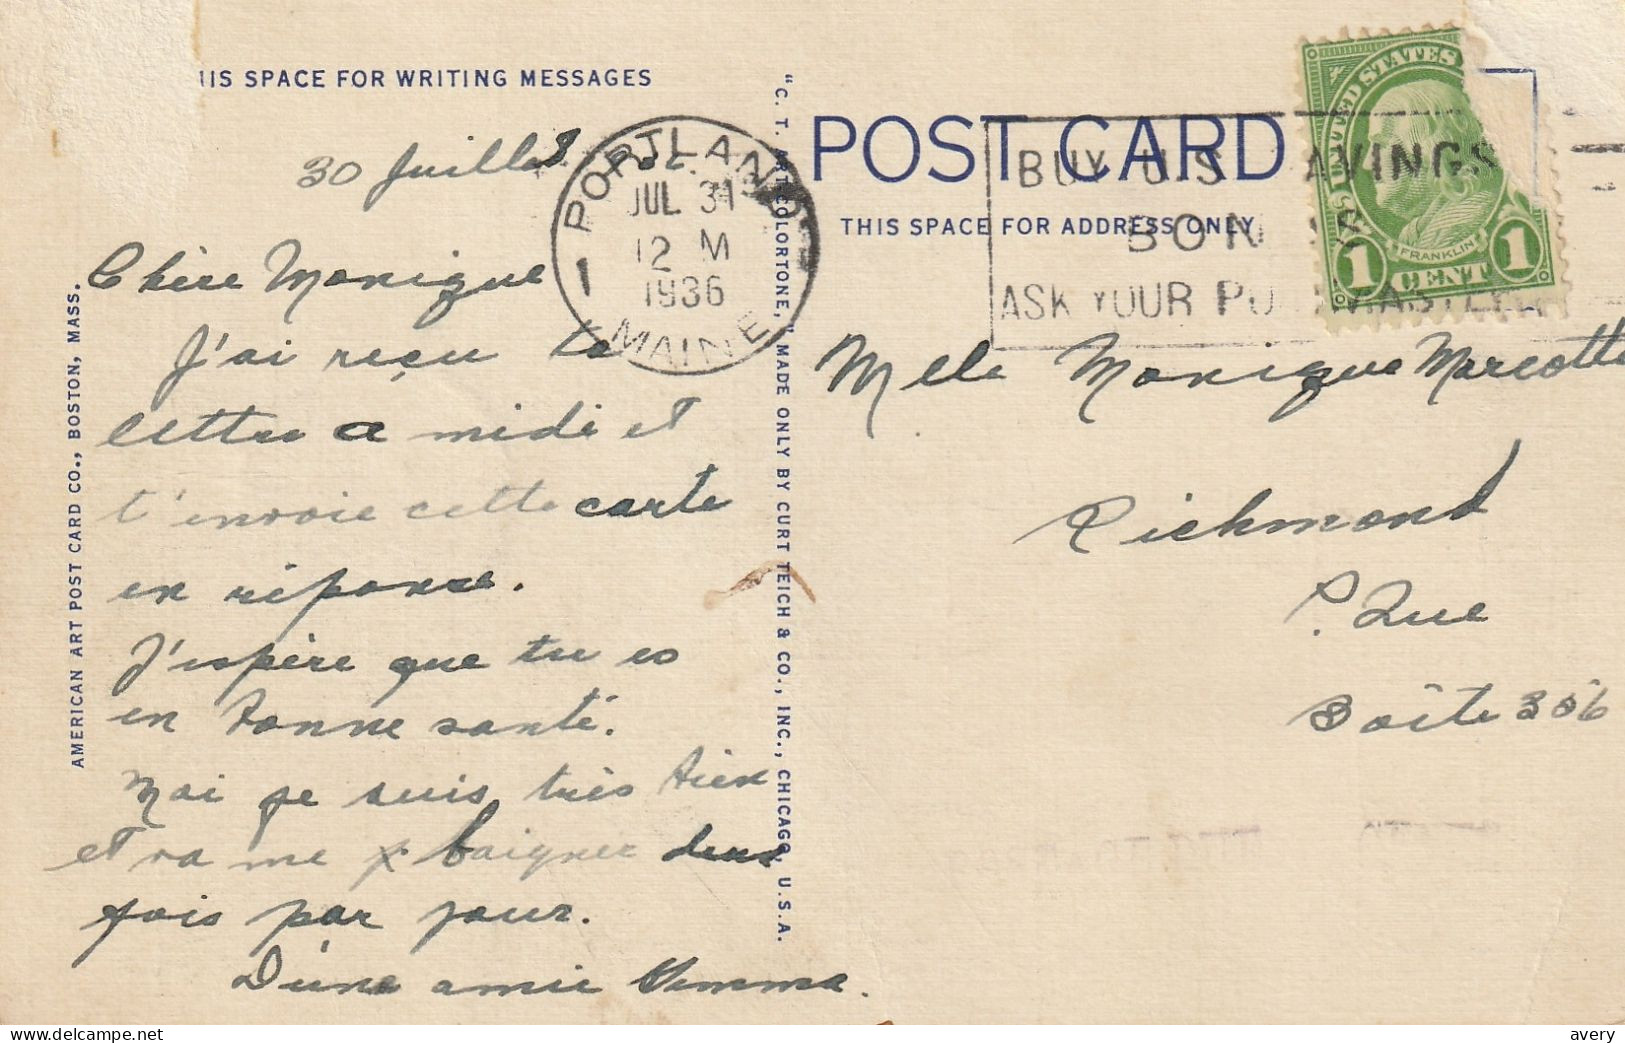 THIS SPACE FOR WRITING MESSAGES
30 Juillet
Chère Monique
J'ai reçu ta
lettre a midi et
t'envoie cette carte
en réponse.
J'espère que tu es
en bonne santé.
Moi je suis très bien
et va me baigner deux
fois par jour.
D'une amie
AMERICAN ART POST CARD CO., BOSTON, MASS.
"C. T. ART COLORTONE," MADE ONLY BY CURT TEICH & CO., INC., CHICAGO, U.S.A.
PORTLAND
JUL 31
12 M
1936
MAINE
1
POST CARD
THIS SPACE FOR ADDRESS ONLY
BUY U S SAVINGS
BONDS
ASK YOUR POSTMASTER
UNITED STATES
FRANKLIN
1 CENT 1
Melle Monique Marcotte
Richmond
P. Que
Boîte 306
avery